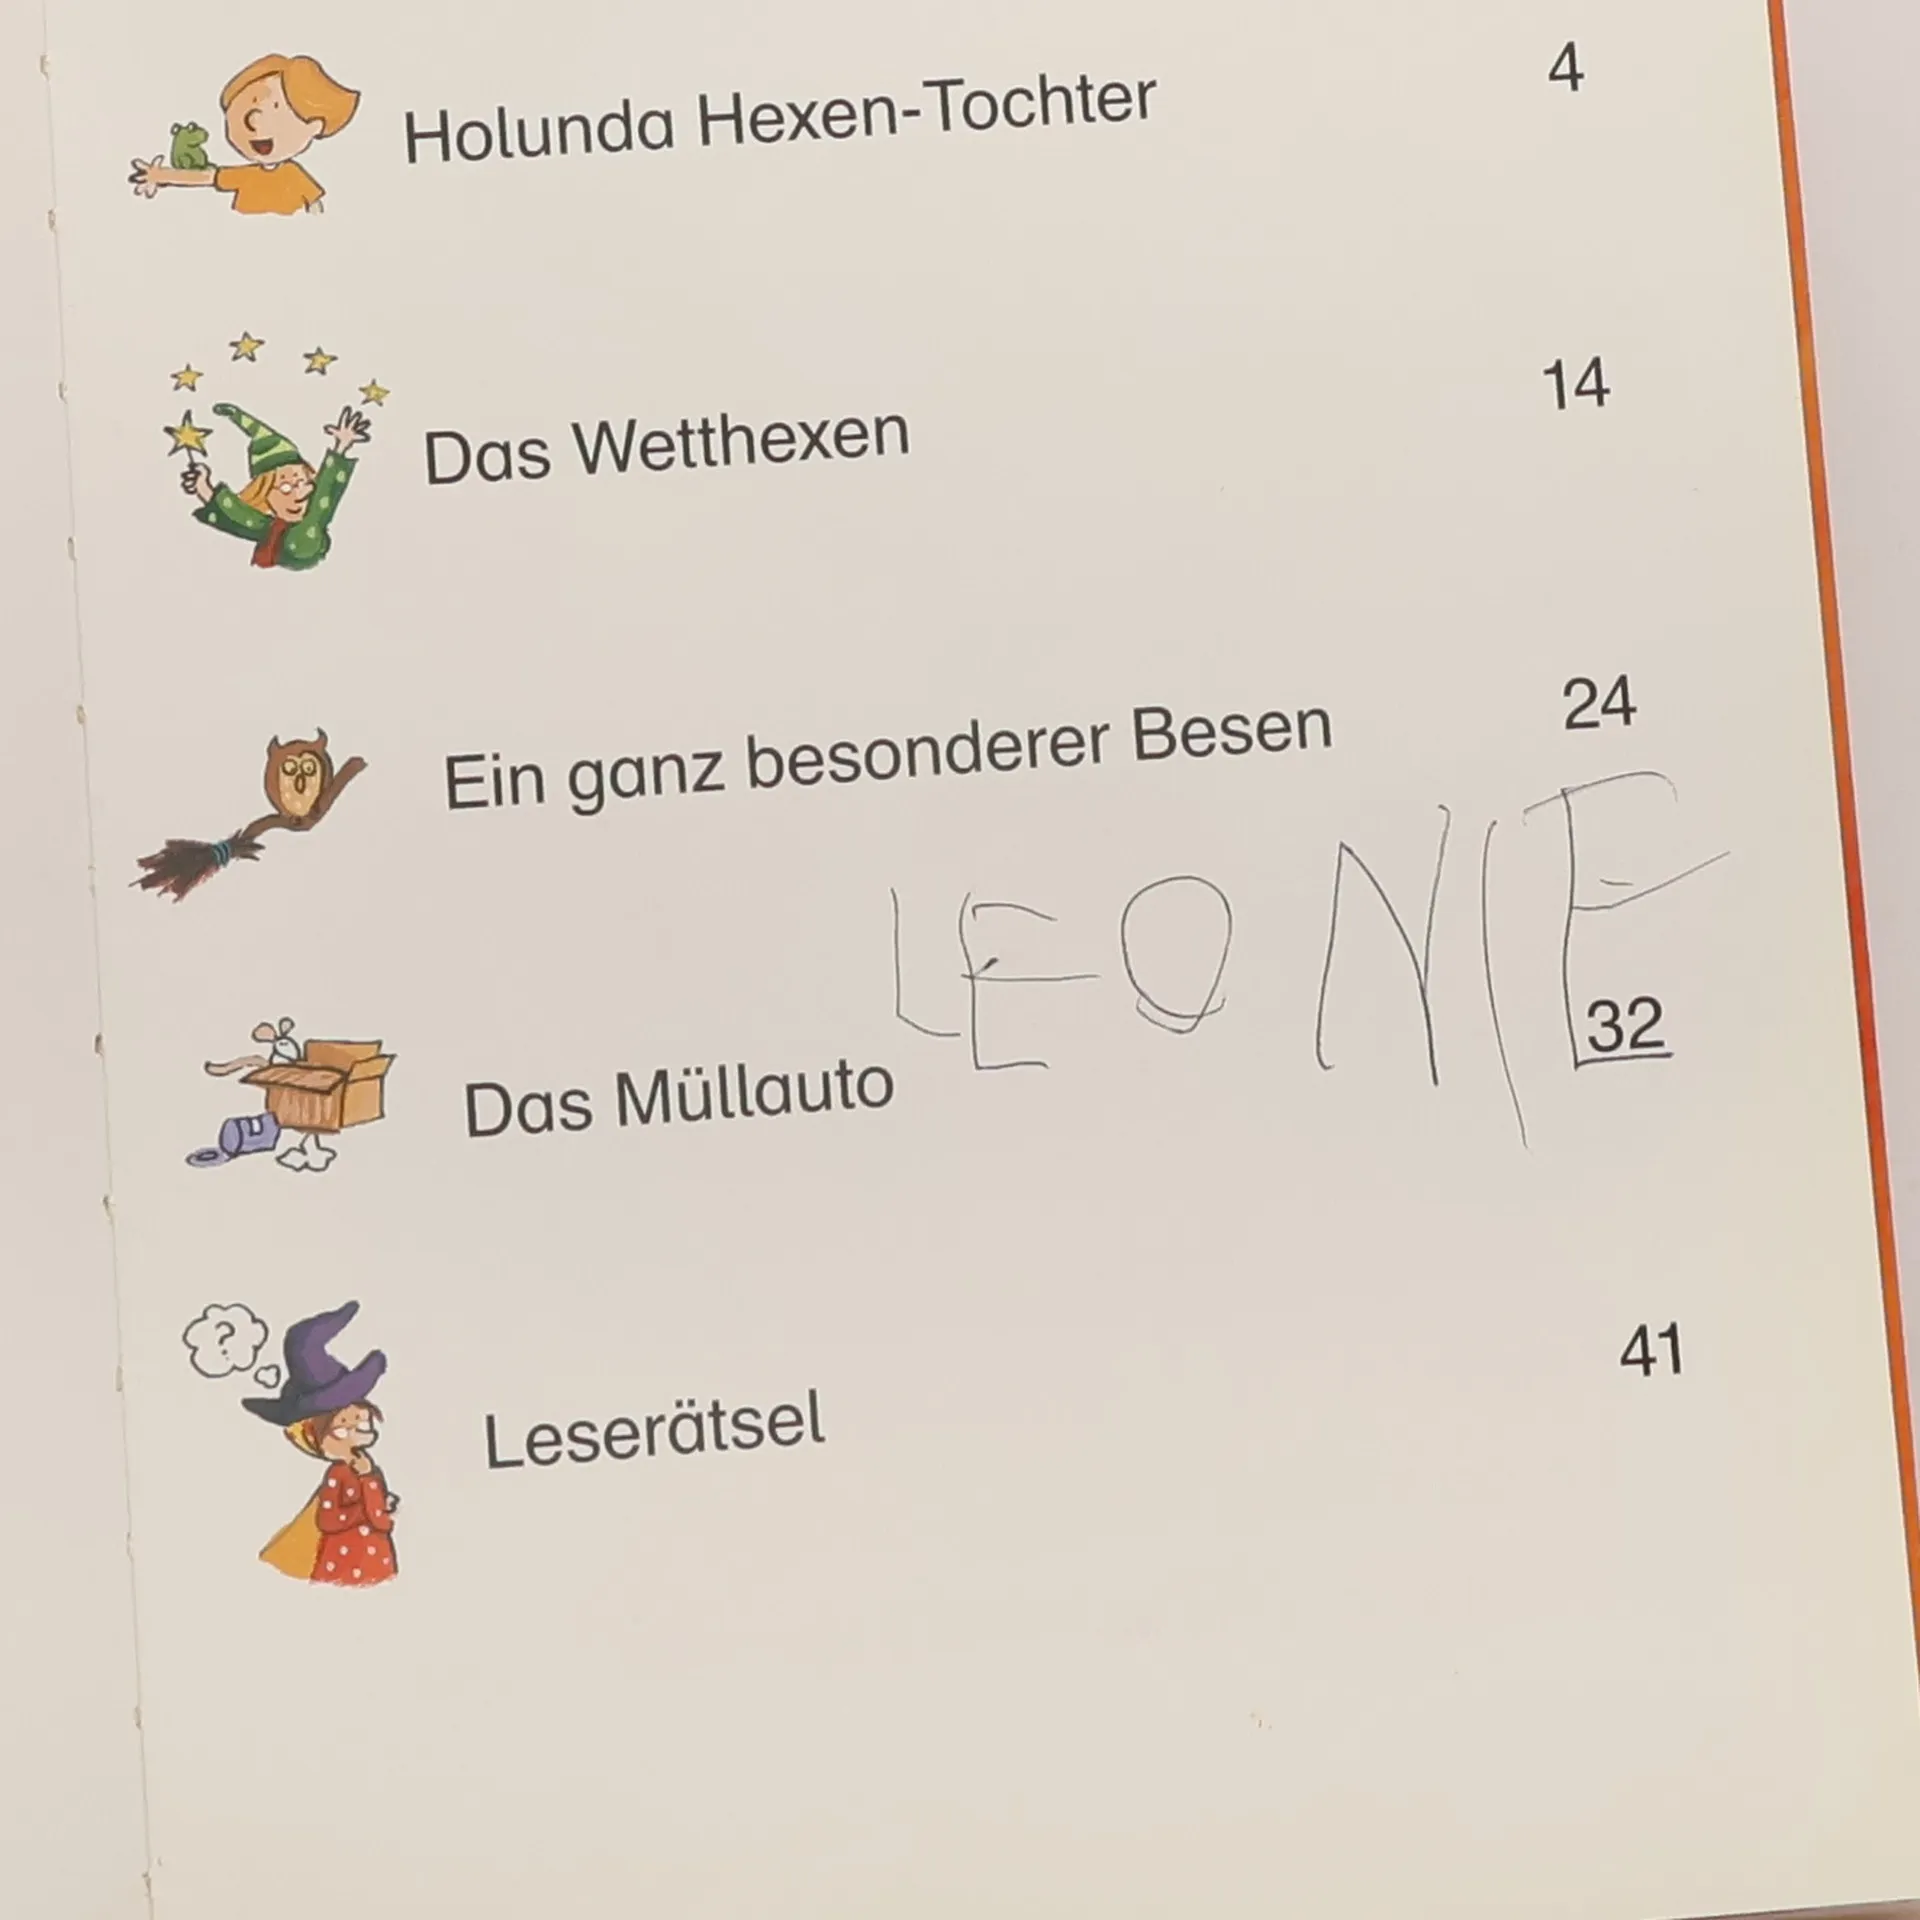 Holunda Hexen-Tochter 4
Das Wetthexen 14
Ein ganz besonderer Besen 24
LEONIE
Das Müllauto 32
?
Leserätsel 41